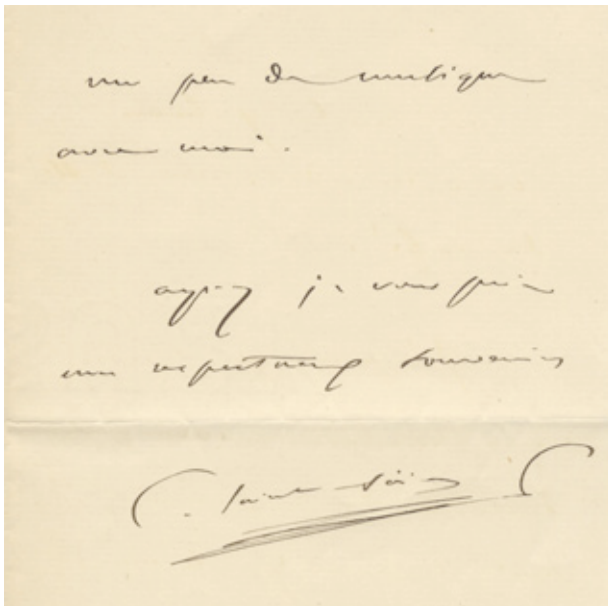 un peu de musique
avec moi.
agréez je vous prie
mes respectueux souvenirs
C. Saint-Saëns